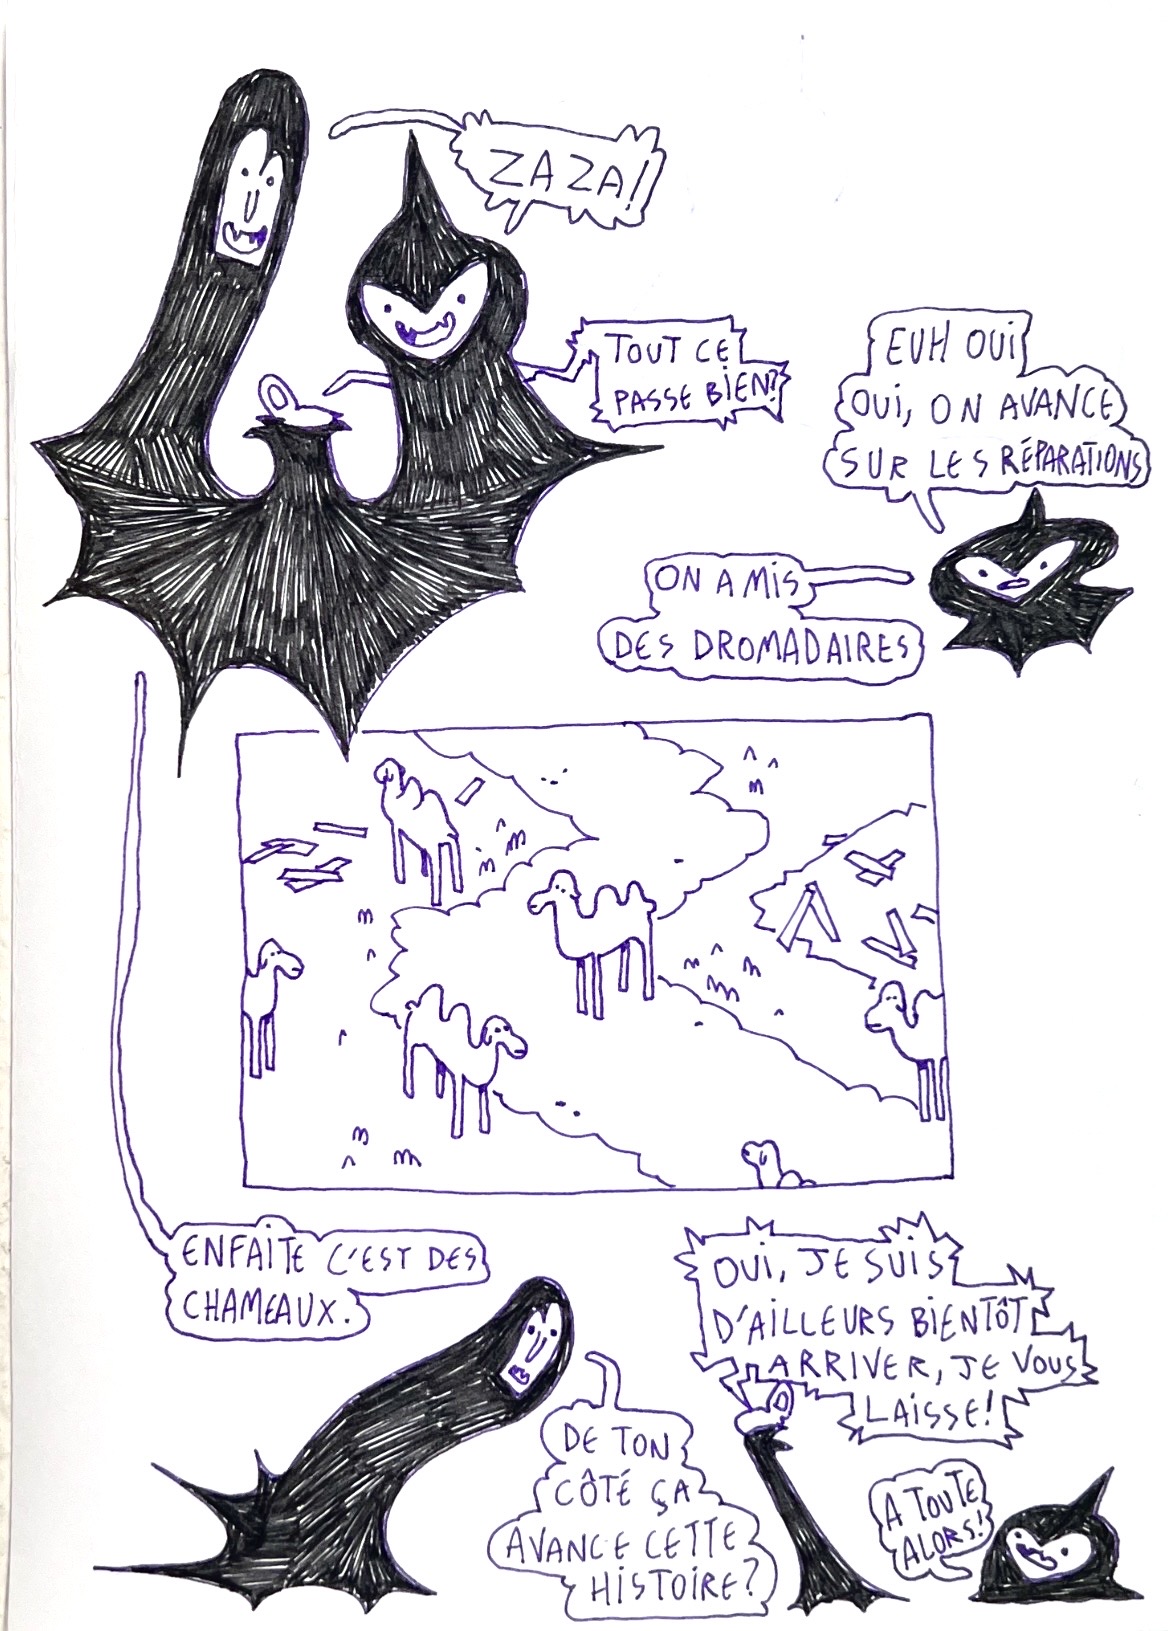 ZAZA!
TOUT CE
PASSE BIEN?
EUH OUI
OUI, ON AVANCE
SUR LES RÉPARATIONS
ON A MIS
DES DROMADAIRES
ENFAITE C'EST DES
CHAMEAUX.
DE TON
CÔTÉ ÇA
AVANCE CETTE
HISTOIRE?
OUI, JE SUIS
D'AILLEURS BIENTÔT
ARRIVER, JE VOUS
LAISSE!
A TOUTE
ALORS!